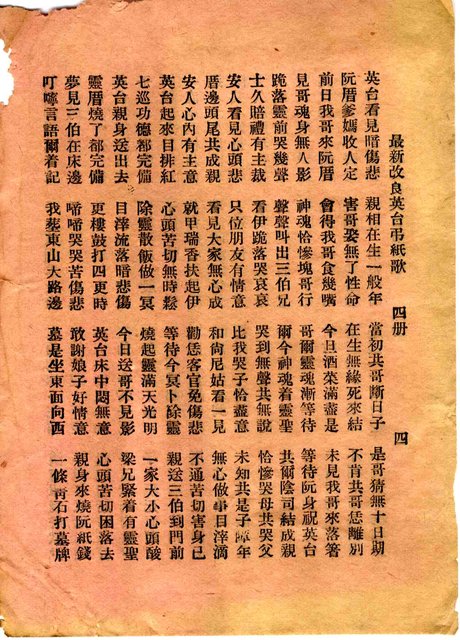 最新改良英台弔紙歌 四册 四
英台看見暗傷悲 親相在生一般年 當初共哥斷日子 是哥猜無十日期
阮厝爹媽收人定 害哥娶無了性命 在生無緣死來結 不肯共哥恁離別
前日我哥來阮厝 會得我哥食幾嘴 今旦酒菜滿盡是 未見我哥來落箸
見哥魂身無人影 神魂恰慘塊哥行 哥爾靈魂漸等待 等待阮身祝英台
跪落靈前哭幾聲 聲聲叫出三伯兄 爾今神魂着靈聖 共爾陰司結成親
士久賠禮有主裁 看伊跪落哭哀哀 哭到無聲共無說 恰慘哭母共哭父
安人看見心頭悲 只位朋友有情意 比我哭子恰盡意 未知共是子障年
厝邊頭尾共成親 看見大家無心成 和尚尼姑看一見 無心做事目滓滴
安人心內有主意 就甲瑞香扶起伊 勸恁客官免傷悲 不通苦切害身已
英台起來目排紅 心頭苦切無時鬆 等待今冥卜除靈 親送三伯到門前
七巡功德都完備 除靈散飯做一冥 燒起靈滿天光明 一家大小心頭酸
英台親身送出去 目滓流落暗悲傷 今日送哥不見影 梁兄緊着有靈聖
靈厝燒了都完備 更樓鼓打四更時 英台床中悶無意 心頭苦切困落去
夢見三伯在床邊 啼啼哭哭苦傷悲 敢謝娘子好情意 親身來燒阮紙錢
叮嚀言語爾着記 我塟東山大路邊 墓是坐東面向西 一條靑石打墓牌